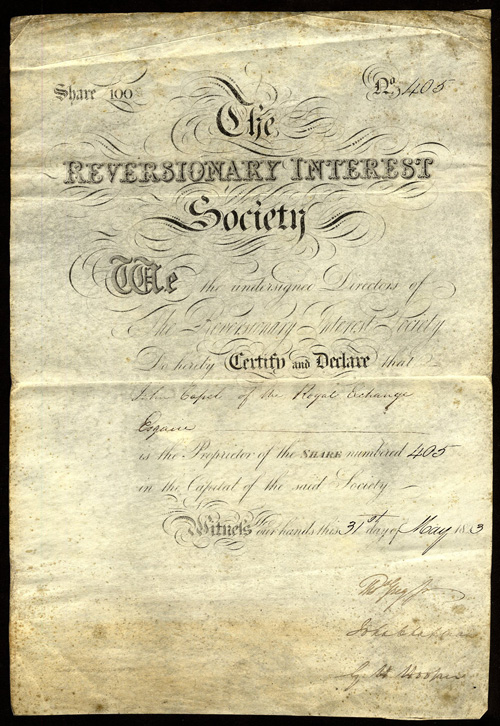 Share 100
No. 405
The
REVERSIONARY INTEREST
Society
We the undersigned Directors of
The Reversionary Interest Society
Do hereby Certify and Declare that
John Capel of the Royal Exchange
Esquire
is the Proprietor of the SHARE numbered 405
in the Capital of the said Society
Witness Our hands this 31st day of May